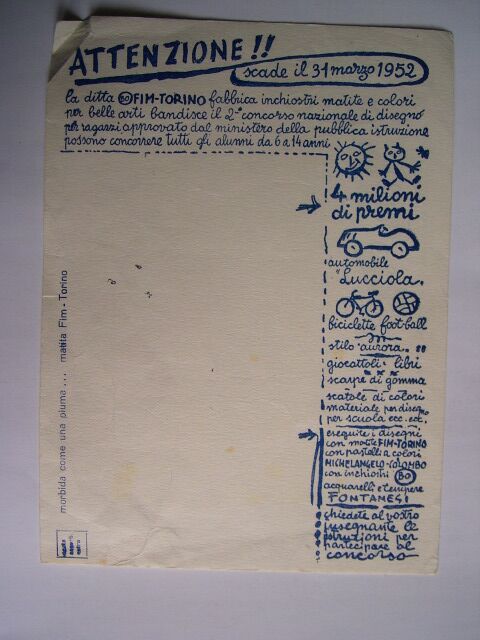 ATTENZIONE!!
scade il 31 marzo 1952
la ditta BO FIM-TORINO fabbrica inchiostri matite e colori
per belle arti bandisce il 2° concorso nazionale di disegno
per ragazzi approvato dal ministero della pubblica istruzione
possono concorrere tutti gli alumni da 6 a 14 anni
4 milioni
di premi
automobile
"Lucciola"
biciclette foot-ball
stilo "aurora"
giocattoli - libri
scarpe di gomma
scatole di colori
materiale per disegno
per scuola ecc. ect.
eseguite i disegni
con matite FIM-TORINO
con pastelli a colori
MICHELANGELO-COLOMBO
con inchiostri BO
acquarelli e tempere
FONTANESI
chiedete al vostro
insegnante le
istruzioni per
partecipare al
concorso
morbida come una piuma... matita Fim - Torino